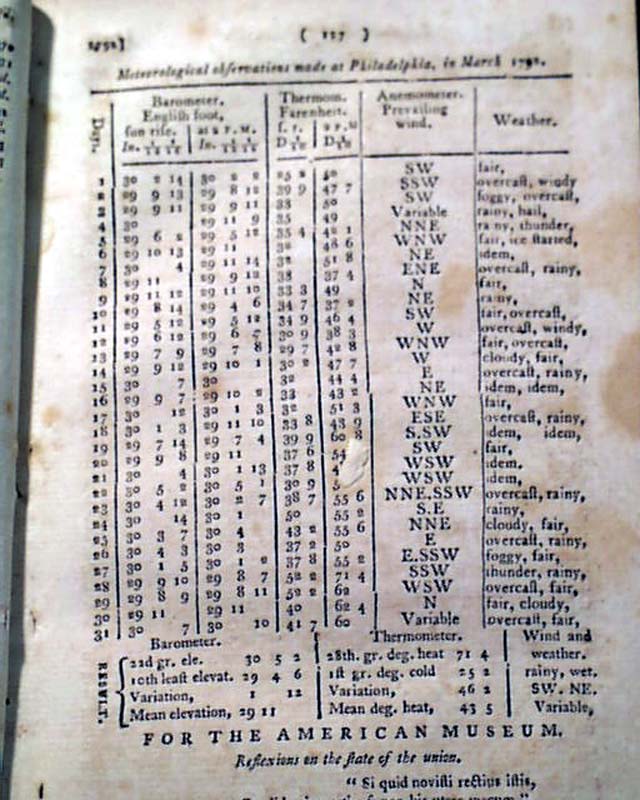 ( 127 )
Meteorological obſervations made at Philadelphia, in March
Barometer. Thermom. Anemometer.
Engliſh foot, Farenheit. Prevailing
ſun riſe. at 2 P. M. wind. Weather.
Days.
1 30 2 14 30 2 2 25 2 40 SW fair,
2 29 9 13 29 8 12 39 9 47 7 SSW overcaſt, windy
3 29 9 11 29 9 11 SW foggy, overcaſt,
4 30 35 49 Variable rainy, hail,
5 29 6 2 29 5 12 35 4 42 1 NNE rainy, thunder,
6 29 10 13 29 11 48 6 WNW fair, ice ſtarted,
7 30 4 29 11 14 32 51 8 NE idem,
8 29 11 29 9 12 38 37 4 ENE overcaſt, rainy,
9 29 11 12 29 11 10 33 3 49 N fair,
10 29 8 14 29 4 6 34 7 37 2 NE rainy,
11 29 5 12 29 5 12 34 9 46 4 SW fair, overcaſt,
12 29 6 12 29 6 7 30 9 38 3 W overcaſt, windy,
13 29 7 9 29 7 8 29 7 42 8 WNW fair, overcaſt,
14 29 9 12 29 10 1 30 2 47 7 W cloudy, fair,
15 30 7 30 32 44 4 E overcaſt, rainy,
16 29 9 7 29 10 2 33 43 2 NE idem, idem,
17 30 12 30 1 3 32 51 3 WNW fair,
18 30 1 3 29 11 10 33 8 43 9 ESE overcaſt, rainy,
19 29 7 14 29 7 4 39 9 60 8 S.SW idem, idem,
20 29 9 8 29 11 37 6 54 SW fair,
21 30 4 30 1 13 37 8 WSW idem.
22 30 5 2 30 5 1 30 9 WSW idem,
23 30 4 12 30 2 7 38 7 55 6 NNE.SSW overcaſt, rainy,
24 30 14 30 1 50 55 2 S.E rainy,
25 30 3 7 30 4 43 2 55 6 NNE cloudy, fair,
26 30 4 3 30 3 37 2 50 E overcaſt, rainy,
27 30 1 5 30 1 2 37 8 55 2 E.SSW foggy, fair,
28 29 9 10 29 8 7 52 2 71 4 SSW thunder, rainy,
29 29 8 9 29 8 11 52 2 62 WSW overcaſt, fair,
30 29 11 29 11 40 62 4 N fair, cloudy,
31 30 7 30 10 41 7 60 Variable overcaſt, fair,
RESULT.
Barometer. Thermometer. Wind and
22d gr. ele. 30 5 2 28th. gr. deg. heat 71 4 weather.
10th leaſt elevat. 29 4 6 1ſt gr. deg. cold 25 2 rainy, wet.
Variation, 1 12 Variation, 46 2 SW. NE.
Mean elevation, 29 11 Mean deg. heat, 43 5 Variable,
FOR THE AMERICAN MUSEUM.
Reflexions on the ſtate of the union.
“ Si quid noviſti rectius iſtis,